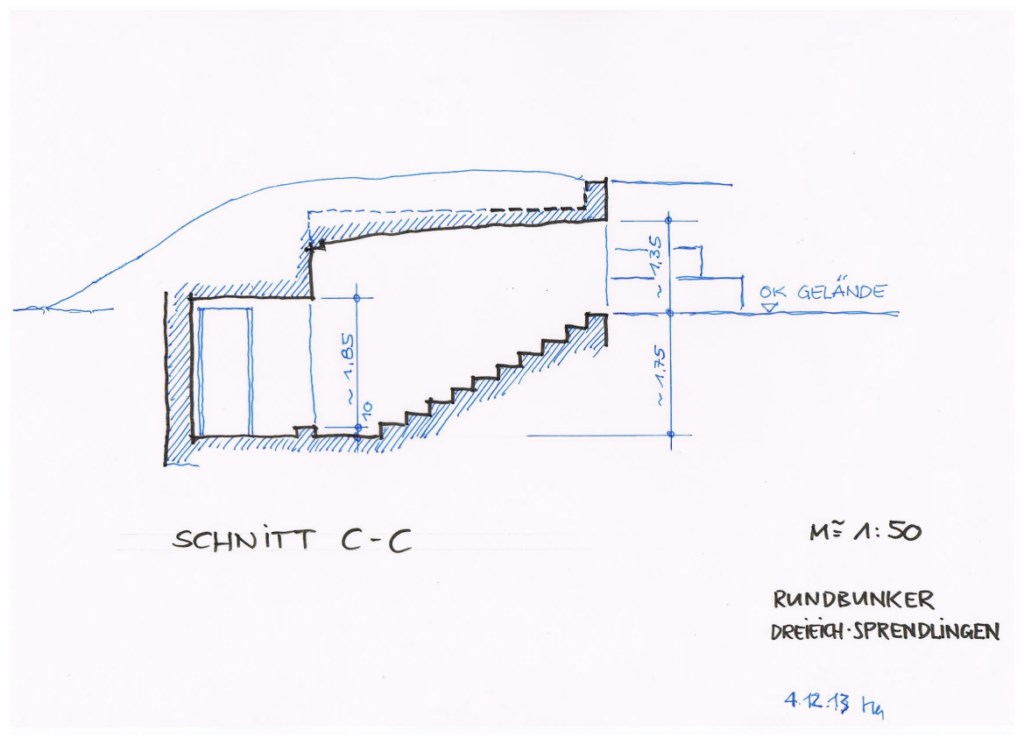 ~ 1.35
OK GELÄNDE
~ 1.85
~ 1.75
10
SCHNITT C-C
M≈ 1:50
RUNDBUNKER
DREIEICH-SPRENDLINGEN
4.12.13